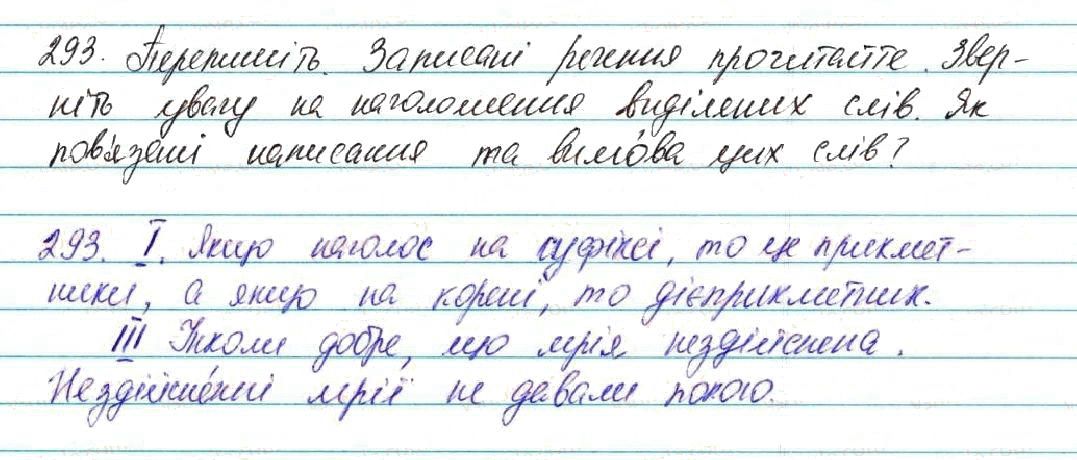 293. Перепишіть. Записані речення прочитайте. Звер-
ніть увагу на наголошення виділених слів. Як
пов'язані написання та вимо́ва цих слів?
293. I. Якщо наголос на суфіксі, то це прикмет-
ники, а якщо на корені, то дієприкметник.
III Інколи добре, що мрія нездійснена.
Нездійсне́нні мрії не давали покою.